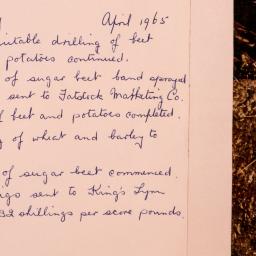 April 1965
suitable drilling of beet
potatoes continued.
of sugar beet band sprayed
sent to Fatstock Marketing Co.
beet and potatoes completed.
of wheat and barley to
of sugar beet commenced.
sent to King's Lynn
32 shillings per score pounds.